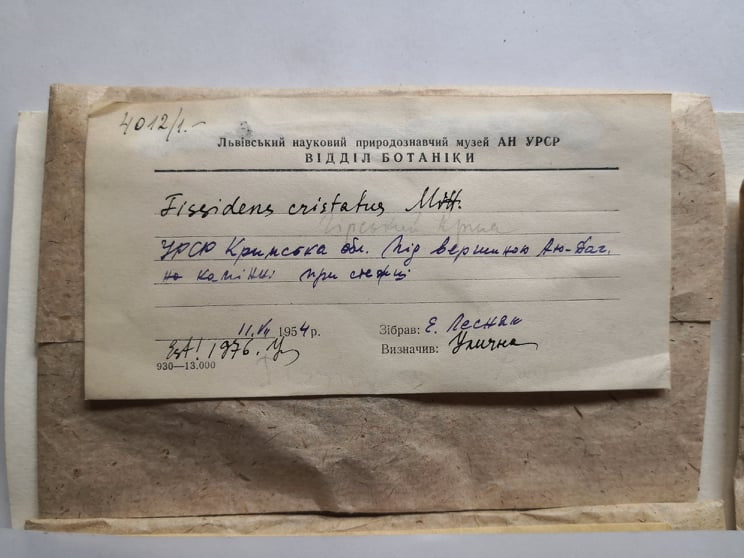 4012/1.-
Львівський науковий природознавчий музей АН УРСР
ВІДДІЛ БОТАНІКИ
Fissidens cristatus Mitt.
Гірський Крим
УРСР Кримська обл. Під вершиною Аю-Даг,
на камінні при стежці
11.VII 1954 р.
Зібрав: Є. Лесняк
Est! 1976. У
Визначив: Улична
930—13.000